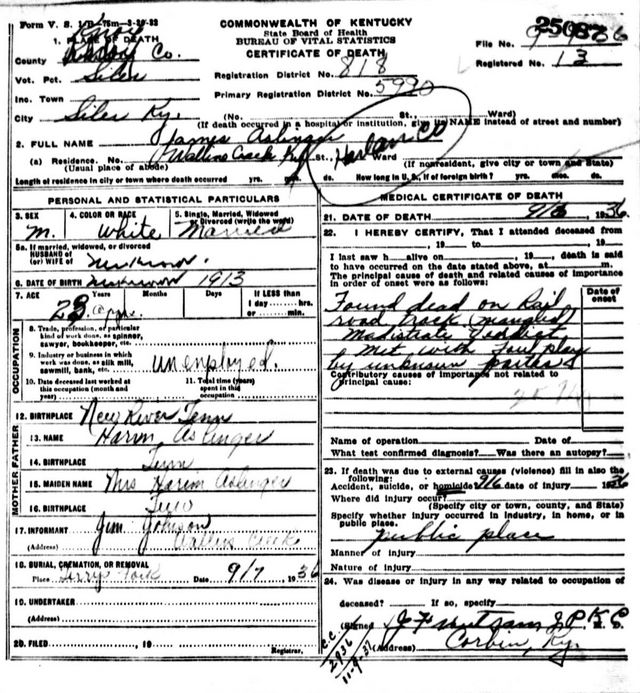 Form V. S. 1-D-75m-3-20-33
COMMONWEALTH OF KENTUCKY
State Board of Health
BUREAU OF VITAL STATISTICS
CERTIFICATE OF DEATH
25086
File No.
Registered No. 13
1. PLACE OF DEATH
County Knox Co.
Vot. Pct. Siler
Inc. Town
City Siler Ky.
Registration District No. 818
Primary Registration District No. 5990
(No. St., Ward)
(If death occurred in a hospital or institution, give its NAME instead of street and number)
2. FULL NAME James Aslinger
(a) Residence. No. Wallins Creek Ky. St., Ward Harlan CO
(Usual place of abode) (If nonresident, give city or town and State)
Length of residence in city or town where death occurred yrs. mos. ds. How long in U. S., if of foreign birth? yrs. mos. ds.
PERSONAL AND STATISTICAL PARTICULARS
3. SEX M.
4. COLOR OR RACE White
5. Single, Married, Widowed or Divorced (write the word) Married
5a. If married, widowed, or divorced
HUSBAND of
(or) WIFE of Unknown
6. DATE OF BIRTH Unknown 1913
7. AGE 23 Years Months Days If LESS than
1 day hrs.
or min.
OCCUPATION
8. Trade, profession, or particular
kind of work done, as spinner,
sawyer, bookkeeper, etc.
9. Industry or business in which
work was done, as silk mill,
sawmill, bank, etc. unemployed.
10. Date deceased last worked at
this occupation (month and
year)
11. Total time (years)
spent in this
occupation
12. BIRTHPLACE New River Tenn
FATHER
13. NAME Harim Aslinger
14. BIRTHPLACE Tenn
MOTHER
15. MAIDEN NAME Mrs Harim Aslinger
16. BIRTHPLACE Tenn
17. INFORMANT Jim Johnson
(Address) Wallins Creek
18. BURIAL, CREMATION, OR REMOVAL
Place Date 9/7, 1936
19. UNDERTAKER
(Address)
20. FILED , 19
Registrar.
MEDICAL CERTIFICATE OF DEATH
21. DATE OF DEATH 9/6, 1936
22. I HEREBY CERTIFY, That I attended deceased from
, 19 to , 19
I last saw h alive on , 19 , death is said
to have occurred on the date stated above, at m.
The principal cause of death and related causes of importance
in order of onset were as follows:
Date of onset
Found dead on Rail
road track (mangled)
Madistrate Verdict
Met with foul play
by unknown parties
Contributory causes of importance not related to
principal cause:
Name of operation Date of
What test confirmed diagnosis? Was there an autopsy?
23. If death was due to external causes (violence) fill in also the
following:
Accident, suicide, or homicide 9/6 date of injury 1936
Where did injury occur?
(Specify city or town, county, and State)
Specify whether injury occurred in industry, in home, or in
public place. public place
Manner of injury
Nature of injury
24. Was disease or injury in any way related to occupation of
deceased? If so, specify
(Signed) J P K C M. D.
(Address) Corbin, Ky.
C.C.
2936
11-9-37